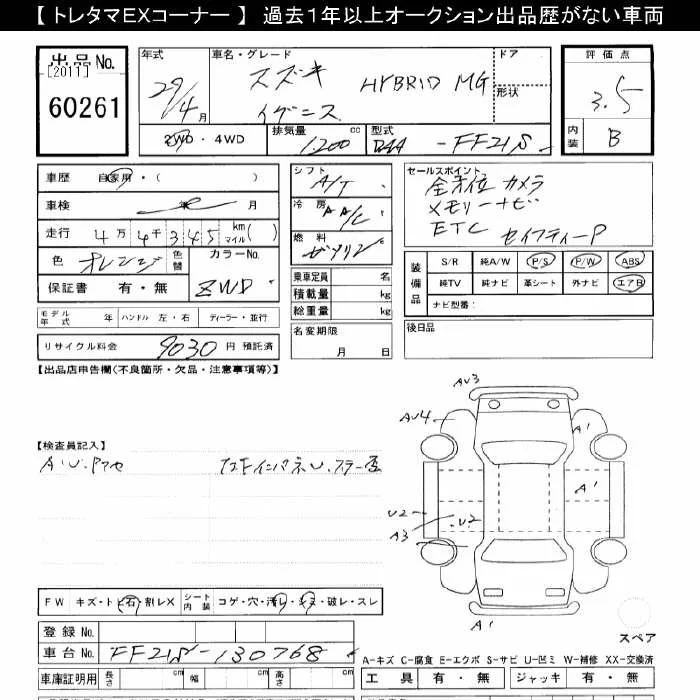 【 トレタマEXコーナー 】 過去1年以上オークション出品歴がない車両
出品No.
[2011]
60261
年式
29/4月
車名・グレード
スズキ HYBRID MG
イグニス
ドア
形状
2WD・4WD
排気量
1200 cc
型式
DAA - FF21S
評価点
3.5
内装
B
車歴 自家用・( )
車検 年 月
走行 4万4千345 km マイル ( )
色 オレンジ 色替
カラーNo.
ZWD
保証書 有・無
モデル年式 年 ハンドル 左・右 ディーラー・並行
リサイクル料金 9030 円 預託済
シフト
A/T
冷房
AA/C
燃料
ガソリン
乗車定員 名
積載量 kg
総重量 kg
名変期限
月 日
セールスポイント
全方位 カメラ
メモリーナビ
ETC セイフティーP
装備品
S/R 純A/W P/S P/W ABS
純TV 純ナビ 革シート 外ナビ エアB
ナビ型番:
後日品
【出品店申告欄(不良箇所・欠品・注意事項等)】
【検査員記入】
AV3
AV4
A'
A'
U2
U2
A3
A'
FW キズ・トビ石・割レX
シート内装 コゲ・穴・汚レ・キズ・破レ・スレ
スペア
登録No.
車台No. FF21S-130768
A-キズ C-腐食 E-エクボ S-サビ U-凹ミ W-補修 XX-交換済
車庫証明用 長さ cm 幅 cm 高さ cm
工具 有・無 ジャッキ 有・無